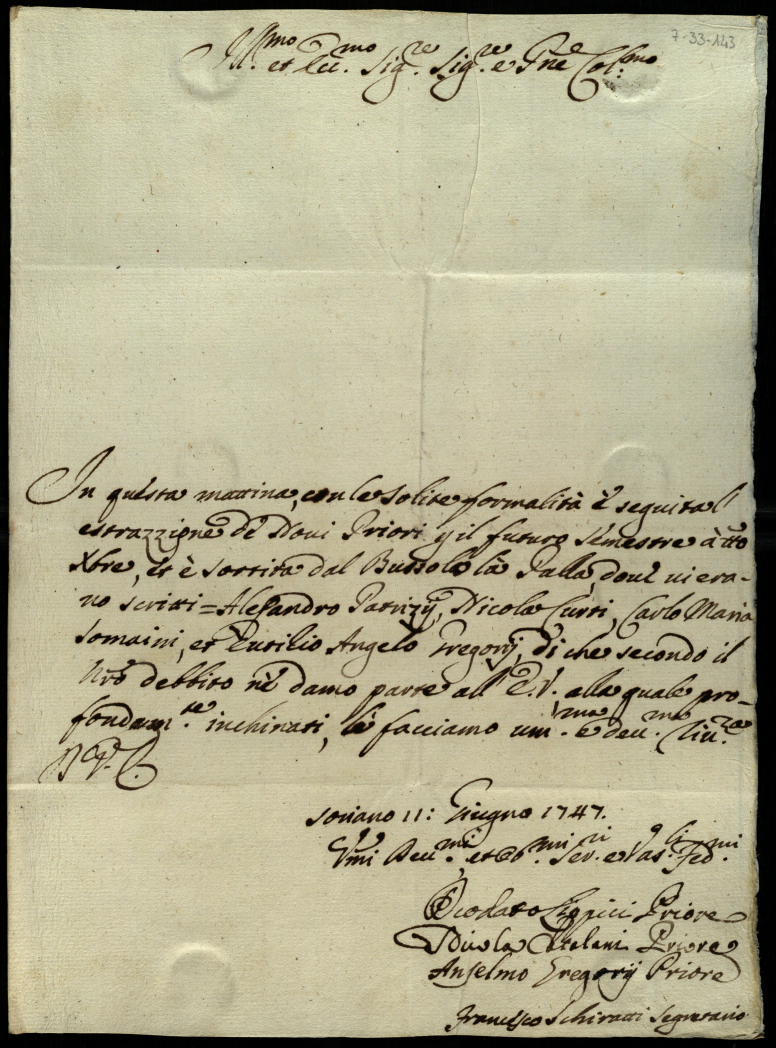 7-33-143
Ill.mo et Ecc.mo Sig.re Sig.re e Pne Col:mo
In questa mattina, con le solite formalità è seguita l'
estrazzione dè Novi Priori p il futuro semestre à tt̃o
Xbre, et è sortita dal Bussolo la Palla, doue ui era-
no scritti = Alesandro Patrizij, Nicola Curti, Carlo Maria
Somaini, et Rutilio Angelo Gregorij, di che secondo il
nrõ debbito nè damo parte all' E.V. alla quale pro-
fondam.te inchinati, le facciamo um.ma e deu.ma riu.za
Soriano 11: Giugno 1747.
Deodato Priore
Nicola Catalani Priore
Anselmo Gregorij Priore
Francesco Schiratti Segretario